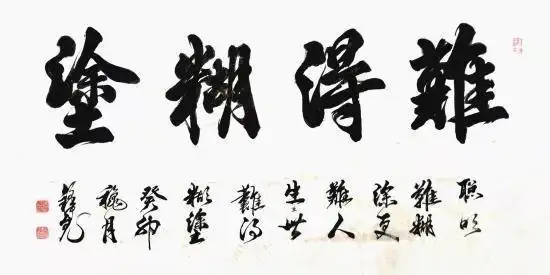 難得糊塗
聰明
難糊
塗更
難人
生世
難得
糊塗
癸卯
月